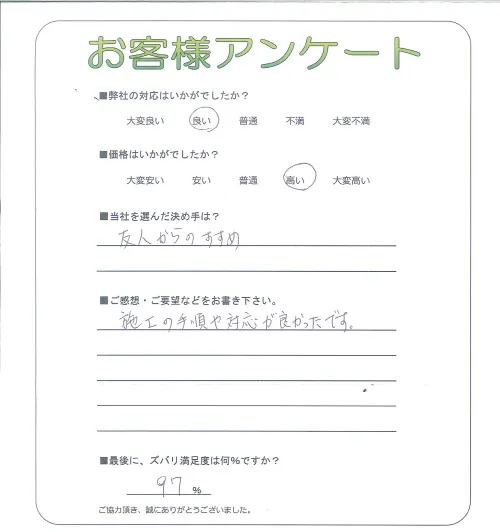 お客様アンケート
■弊社の対応はいかがでしたか？
大変良い 良い 普通 不満 大変不満
■価格はいかがでしたか？
大変安い 安い 普通 高い 大変高い
■当社を選んだ決め手は？
友人からのすすめ
■ご感想・ご要望などをお書き下さい。
施工の手順や対応が良かったです。
■最後に、ズバリ満足度は何%ですか？
97 %
ご協力頂き、誠にありがとうございました。